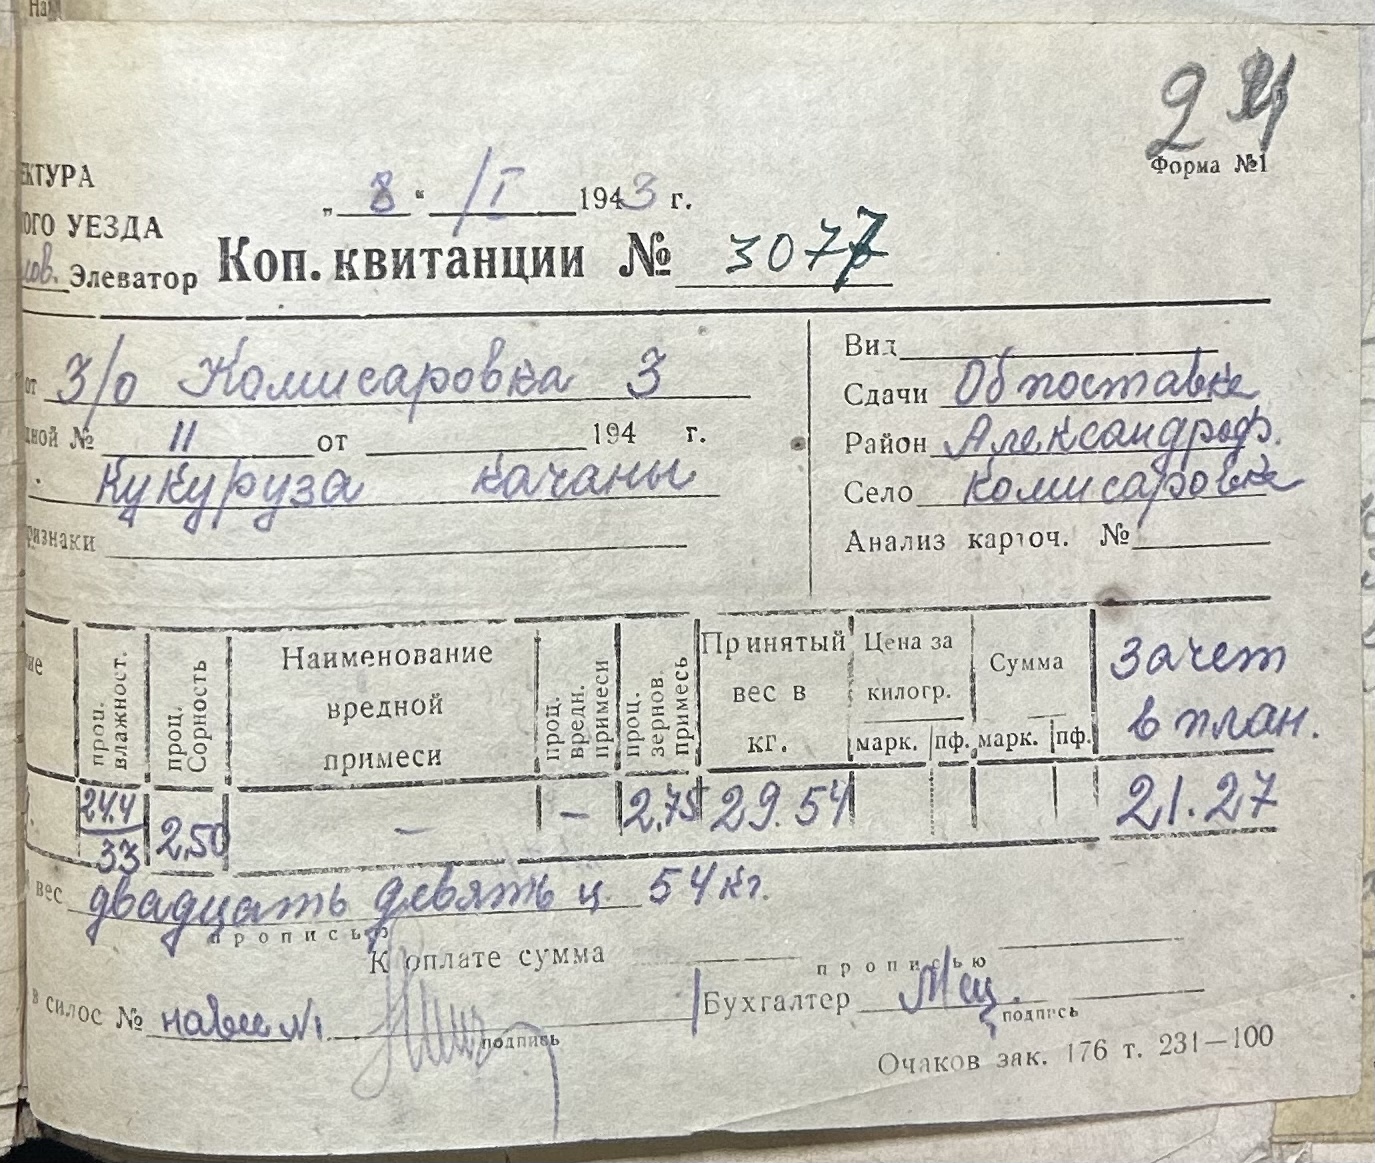 24
Форма №1
ЕКТУРА
„ 8 “ /I 1943 г.
ОГО УЕЗДА
ов. Элеватор
Коп. квитанции № 3077
от З/о Комисаровка 3
дной № 11 от 194 г.
Кукуруза качаны
ризнаки
Вид
Сдачи Обпоставка
Район Александроф.
Село Комисаровка
Анализ карточ. №
ие
проц. влажност.
проц. Сорность
Наименование вредной примеси
проц. вредн. примеси
проц. зернов. примесь
Принятый вес в кг.
Цена за килогр.
марк. пф.
Сумма
марк. пф.
Зачет в план.
24.4
33 2,50 – – 2,75 29.54 21.27
вес двадцать девять ц. 54 кг.
прописью
К оплате сумма
прописью
в силос № навес №1
подпись
Бухгалтер
подпись
Очаков зак. 176 т. 231—100